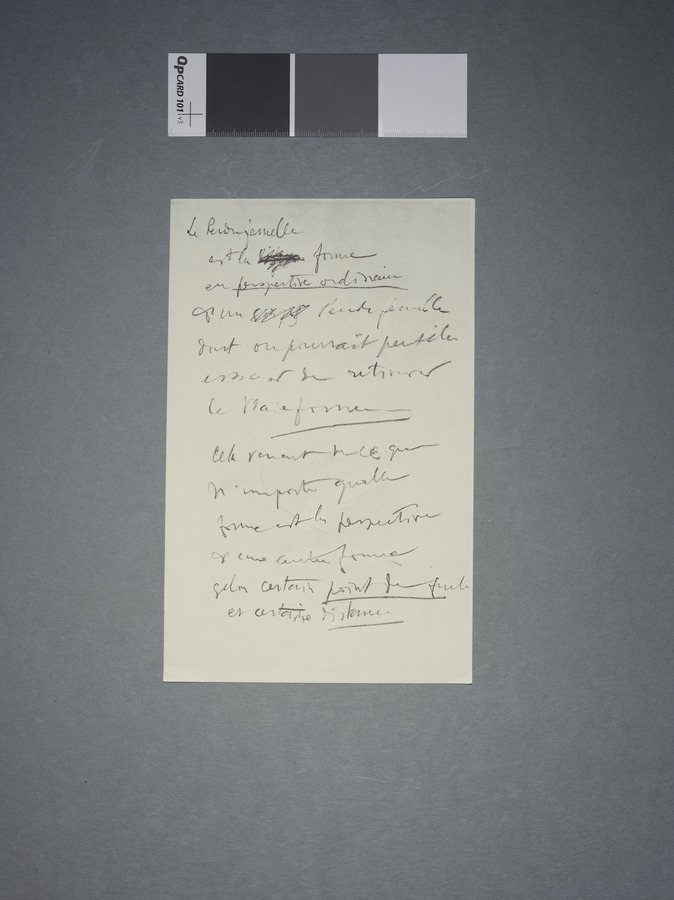 QPCARD 101 v3
Le Pendu femelle
est la forme
en perspective ordinaire
d'un Pendu femelle
dont on pourrait peut être
essayer de retrouver
la vraie forme
Cela venant de ce que
n'importe quelle
forme est la perspective
d'une autre forme
selon certain point de fuite
et certaine distance